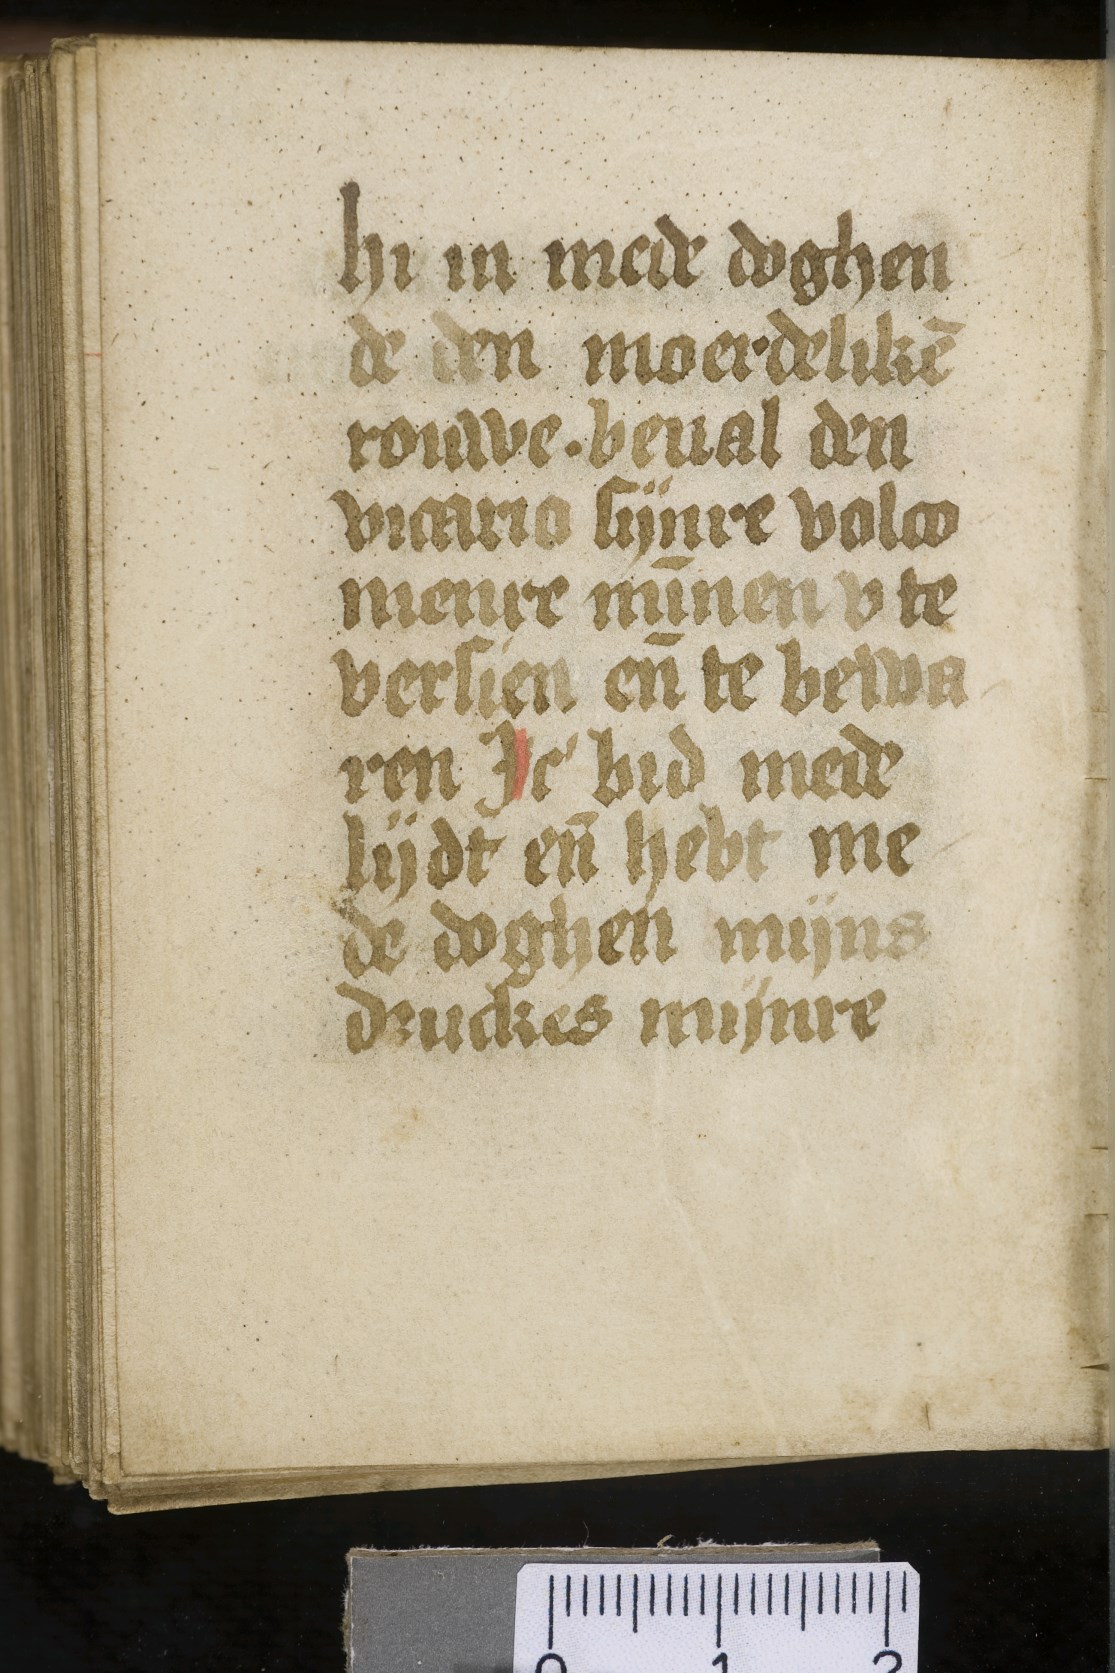 hi in mede doghen
de den moerdelikē
rouwe. beual den
vicario sijnre volco
menre mīnen v te
versien eñ te bewa
ren Ic bid mede
lijdt eñ hebt me
de doghen mijns
druckes mijnre
0 1 2